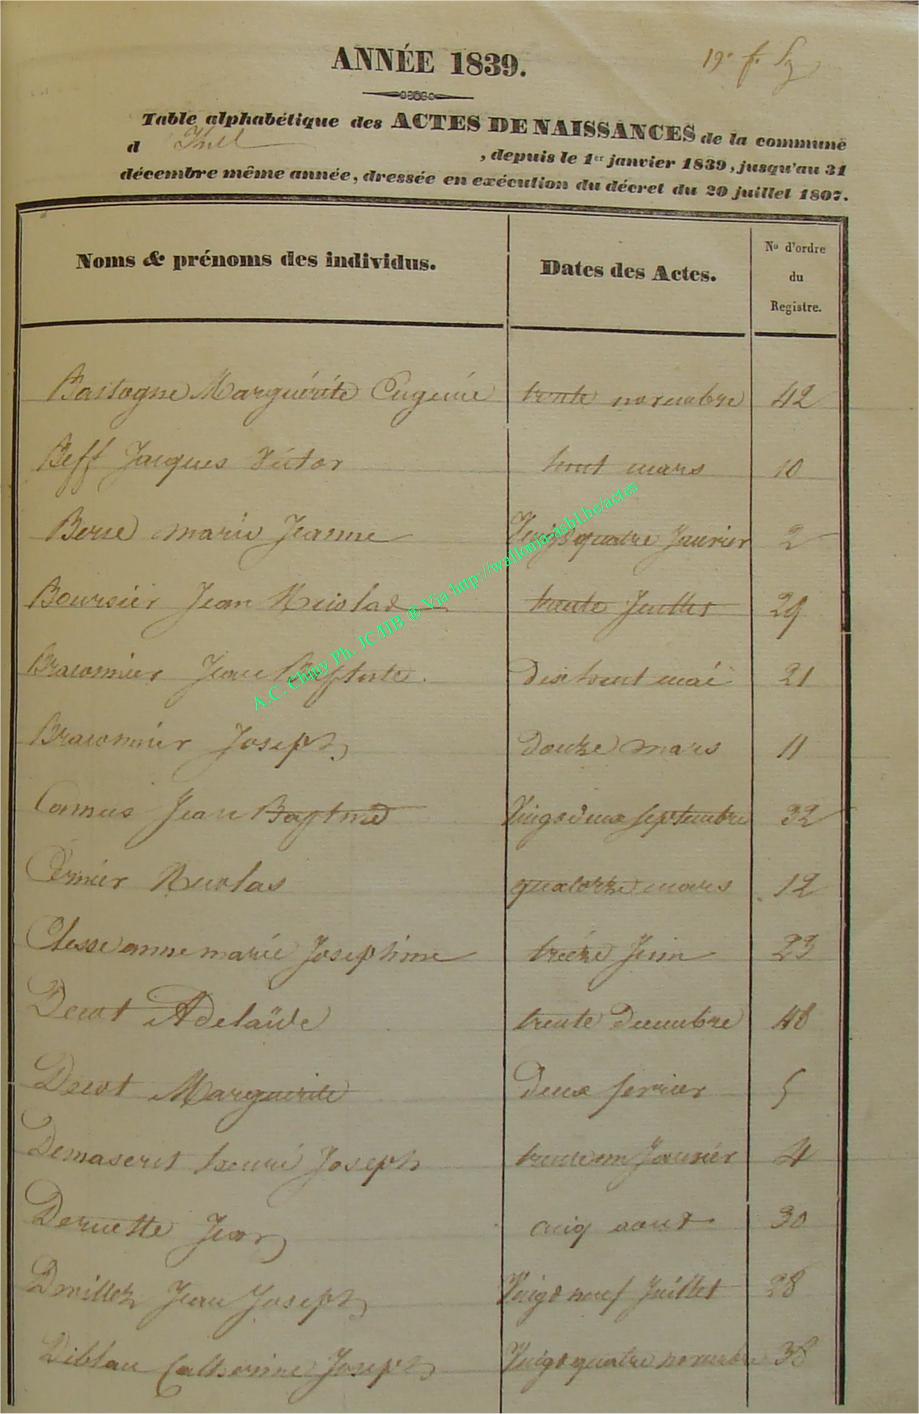 19e f. Sy
ANNÉE 1839.
Table alphabétique des ACTES DE NAISSANCES de la commune
d , depuis le 1er janvier 1839, jusqu'au 31
décembre même année, dressée en exécution du décret du 20 juillet 1807.
Noms & prénoms des individus. Dates des Actes. No d'ordre du Registre.
Bastogne Marguerite Eugenie trente novembre 42
Beff Jacques Victor huit mars 10
Berse marie Jeanne Vingt quatre Janvier 2
Boursier Jean Nicolas trente Juillet 29
Braconnier Jean Baptiste. dix huit mai 21
Braconnier Joseph douze mars 11
Connus Jean Baptiste Vingt deux septembre 32
Nicolas quatorze mars 12
Clesse anne marie Josephine treize Juin 23
Decot Adelaïde trente decembre 48
Decot Marguerite deux fevrier 5
henri Joseph trente un Janvier 4
Deruette Jean cinq aout 30
Jean Joseph Vingt neuf Juillet 28
Catherine Joseph Vingt quatre novembre 38
A.C. Chiny Ph. JC41B ® Via http://wallonia-asbl.be/actes